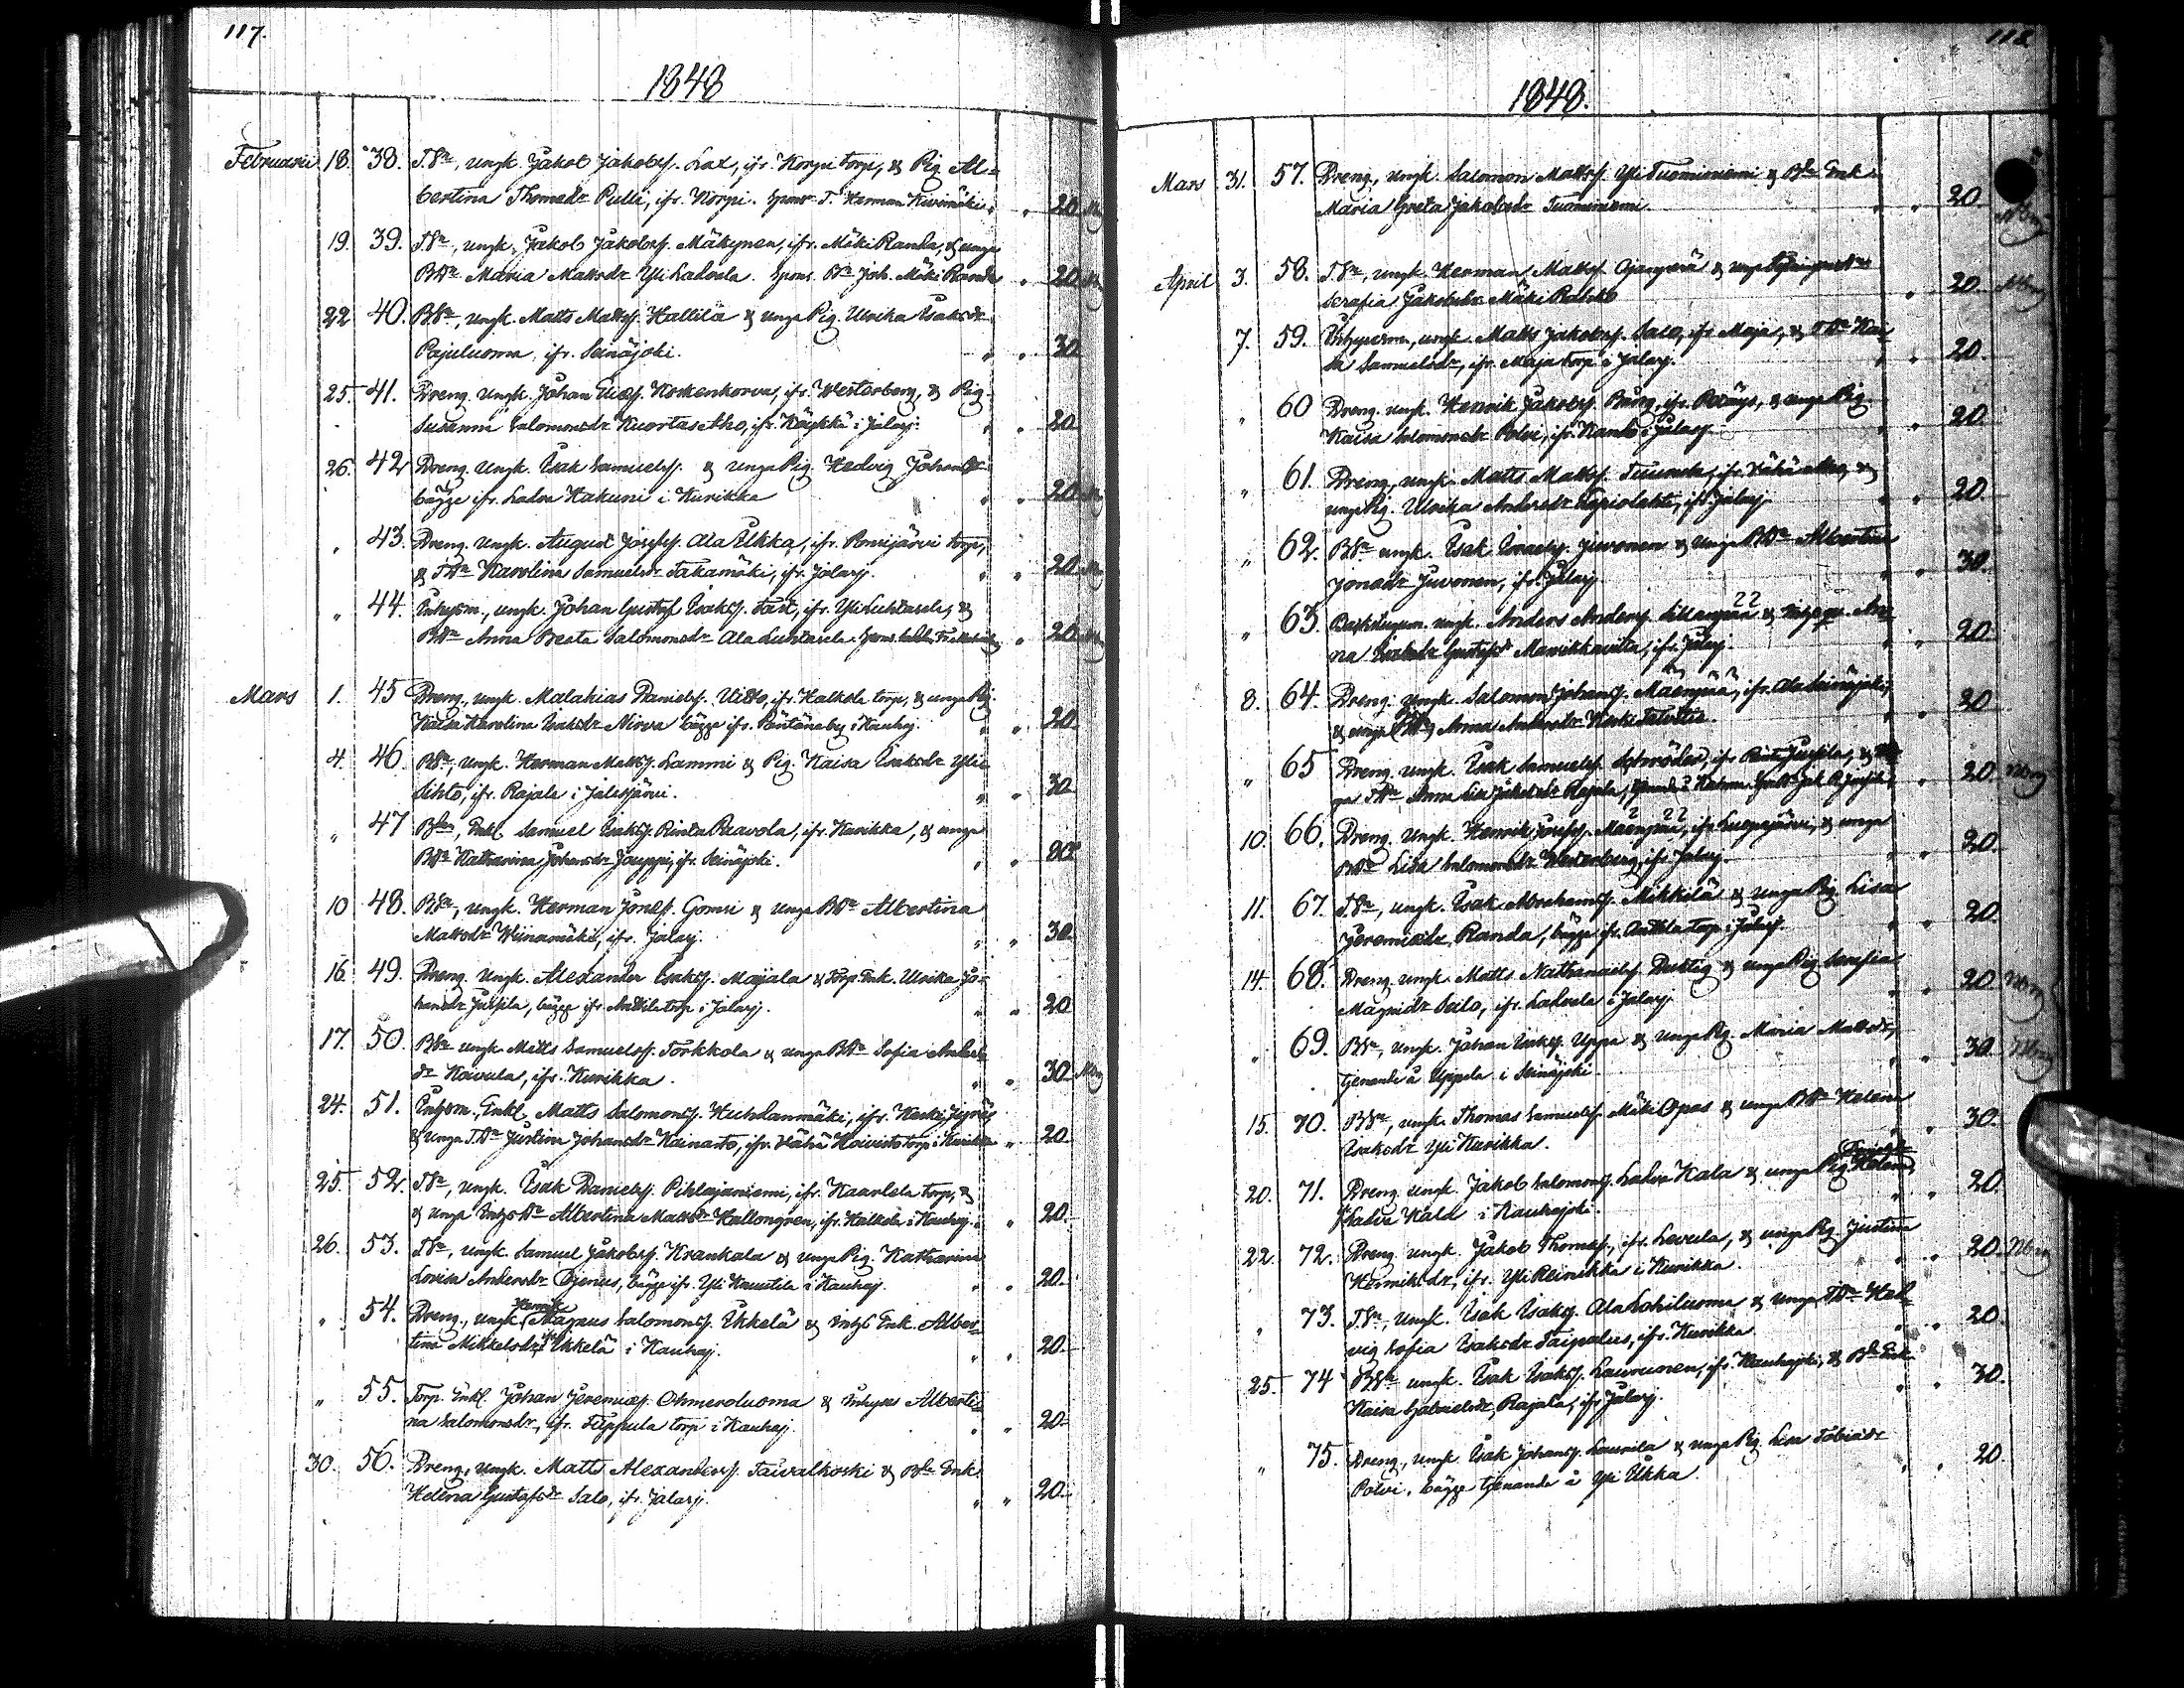 117.
1848
Februarii 18. 38. T.Sn, ungk. Jakob Jakobss. Lax, ifr. Korpi torp, & Pig. Al=
bertina Thomasdr Pulli, ifr. Korpi. Spons. T. Herman Kivimäki. " " 20
19. 39. T.Sn, ungk. Jakob Jakobss. Mäkynen, ifr. Mäki Randa, & unga
BDr Maria Mattsdr Yli Ladvela. Spons. Joh. Mäki Randa " 20
22 40. B.Sn, ungk. Matts Mattss. Hallila & unga Pig. Ulrika Isaksdr
Pajuluoma, ifr. Seinäjoki. " " 30
25. 41. Dreng. ungk. Johan Eliass. Koskenkorva, ifr. Westerberg, & Pig.
Susanna Salomonsdr Kuortas Aho, ifr. Köykkä i Jalasj. " " 20
26. 42 Dreng. ungk. Isak Samuelss. & unga Pig. Hedvig Johansdr
bägge ifr. Ladva Hakuni i Kurikka " " 20
" 43. Dreng. ungk. August Josefss. Ala Ukka, ifr. Tomijärvi torp,
& TDr Karolina Samuelsdr Takamäki, ifr. Jalasj. " " 20
" 44. Inhysm., ungk. Johan Gustaf Isakss. Fast, ifr. Yli Luhtasela, &
BDr Anna Beata Salomonsdr Ala Luhtasela. Spons. " 20
Mars 1. 45 Dreng., ungk. Malakias Danielss. Uitto, ifr. Halkola torp, & unga Pig.
Kaisa Karolina Isaksdr Nirva bägge ifr. Päntäneby i Kauhaj. " " 20
4. 46. B.Sn, ungk. Herman Mattss. Lammi & Pig. Kaisa Isaksdr Yli=
Sihto, ifr. Rajala i Jalasjärvi. " " 30
" 47 Bde, Enkl. Samuel Isakss. Rinta Paavola, ifr. Kurikka, & unga
BDr Katharina Johansdr Jouppi, ifr. Seinäjoki. " "
10 48. B.Sn, ungk. Herman Joness. Gomsi & unga BDr Albertina
Mattsdr Weinamäki, ifr. Jalasj. " " 30
16 49. Dreng. ungk. Alexander Isakss. Majala & Torp. Enk. Ulrika Jo=
hansdr Jussila, bägge ifr. Anttila torp i Jalasj. " " 20
17. 50. B.Sn ungk. Matts Samuelss. Torkkola & unga BDr Sofia Anders
dr Koivula, ifr. Kurikka. " " 30
24. 51. Inhysm., Enkl. Matts Salomonss. Huhdanmäki, ifr. Keski Jyräs
& unga T.Dr Justina Johansdr Kainasto, ifr. Vähä Koivisto torp i Kurikka " 20.
25. 52. T.Sn, ungk. Isak Danielss. Pihlajaniemi, ifr. Kaarlela torp, &
& unga Inhys Dr Albertina Mattsdr Hallongren, ifr. Halkola i Kauhaj. " 20.
26. 53. T.Sn, ungk. Samuel Jakobss. Krankala & unga Pig. Katharina
Lovisa Andersdr Djerius, bägge ifr. Yli Knuutila i Kauhaj. " " 20.
Henrik
" 54. Dreng., ungk. Magnus Salomonss. Ikkelä & Inhs Enk. Alber=
tina Mikkelsdr Ikkelä i Kauhaj. " " 20.
" 55. Torp. Enkl. Johan Jeremiass. Ohmeroluoma & Inhyses Alberti=
na Salomonsdr, ifr. Filppula torp i Kauhaj. " " 20
30. 56. Dreng, ungk. Matts Alexanderss. Taivalkoski & Bde Enk.
Helena Gustafsdr Salo, ifr. Jalasj. " " 20.
118
1848.
Mars 31. 57. Dreng, ungk. Salomon Mattss. Yli Tuominiemi & Bde Enk.
Maria Greta Jakobsdr Tuominiemi. " " 20
April 3. 58. T.Sn, ungk. Herman Mattss. Ojanperä & unga
Serafia Jakobsdr Mäki " 20
7. 59. Inhysesm, ungk. Matts Jakobss. Salo, ifr. Maja, & T.Dr Kai=
sa Samuelsdr, ifr. Maja torp i Jalasj. " " 20.
" 60 Dreng. ungk. Henrik Jakobss. Bung, ifr. & unga Pig.
Kaisa Salomonsdr Polvi, ifr. Kanto i Jalasj. " " 20.
" 61. Dreng, ungk. Matts Mattss. Tuurala, ifr. Vähä Aho, &
unga Pig. Ulrika Andersdr Tapiolahti, ifr. Jalasj. " " 20
" 62. B.Sn ungk. Isak Israelss. Juvonen & unga BDr Albertina
Jonasdr Juvonen, ifr. Jalasj. " " 30.
" 63. ungk. Anders Anderss. &
na Gustafsdr Mannikkoviita, ifr. Jalasj. " " 20
8. 64. Dreng. ungk. Salomon Johanss. Mäenpää, ifr. Ala Seinäjoki,
& unga Anna Andersdr Koski " " 20
" 65 Dreng. ungk. Isak Samuelss. Schröder, ifr. Jussila, &
Anna Lisa Jakobsdr Rajala, " 20
10. 66. Dreng. ungk. Henrik Josefss. Mäenpää, ifr. Luopajärvi, & unga
BDr Lisa Salomonsdr Westerberg, ifr. Jalasj. " " 20.
11. 67. T.Sn, ungk. Isak Abrahamss. Mikkilä & unga Pig. Lisa
Jeremiasdr Randa, bägge ifr. Anttila torp i Jalasj. " " 20.
14. 68. Dreng. ungk. Matts Nathanaelss. Duktig & unga Pig. Serafia
Magnidr Seilo, ifr. Ladvela i Jalasj. " " 20
" 69. B.Sn, ungk. Johan Isakss. Uppa & unga Pig. Maria Mattsdr,
tjenande å Uppala i Seinäjoki. " " 30.
15. 70. B.Sn, ungk. Thomas Samuelss. Mäki Opas & unga BDr Helena
Isaksdr Yli Kurikka. " " 30.
20. 71. Dreng ungk. Jakob Salomonss. Ladva Kala & unga Pig. Helena
Ladva Kala i Kauhajoki. " " 20.
22 72. Dreng. ungk. Jakob Thomass., ifr. Levula, & unga Pig. Justina
Henriksdr, ifr. Yli Reinikka i Kurikka. " " 20
" 73. T.Sn, ungk. Isak Isakss. Ala Lohiluoma & unga T.Dr Hed=
vig Sofia Isaksdr Taipalus, ifr. Kurikka. " " 20.
25. 74 B.Sn ungk. Isak Isakss. Laurunen, ifr. Kauhajoki, & Bde Enk.
Kaisa Gabrielsdr Rajala, ifr. Jalasj. " " 30.
" 75. Dreng., ungk. Isak Johanss. Laurila & unga Pig. Lisa Tobiasdr
Polvi, bägge tjenande å Yli Ukka. " " 20.